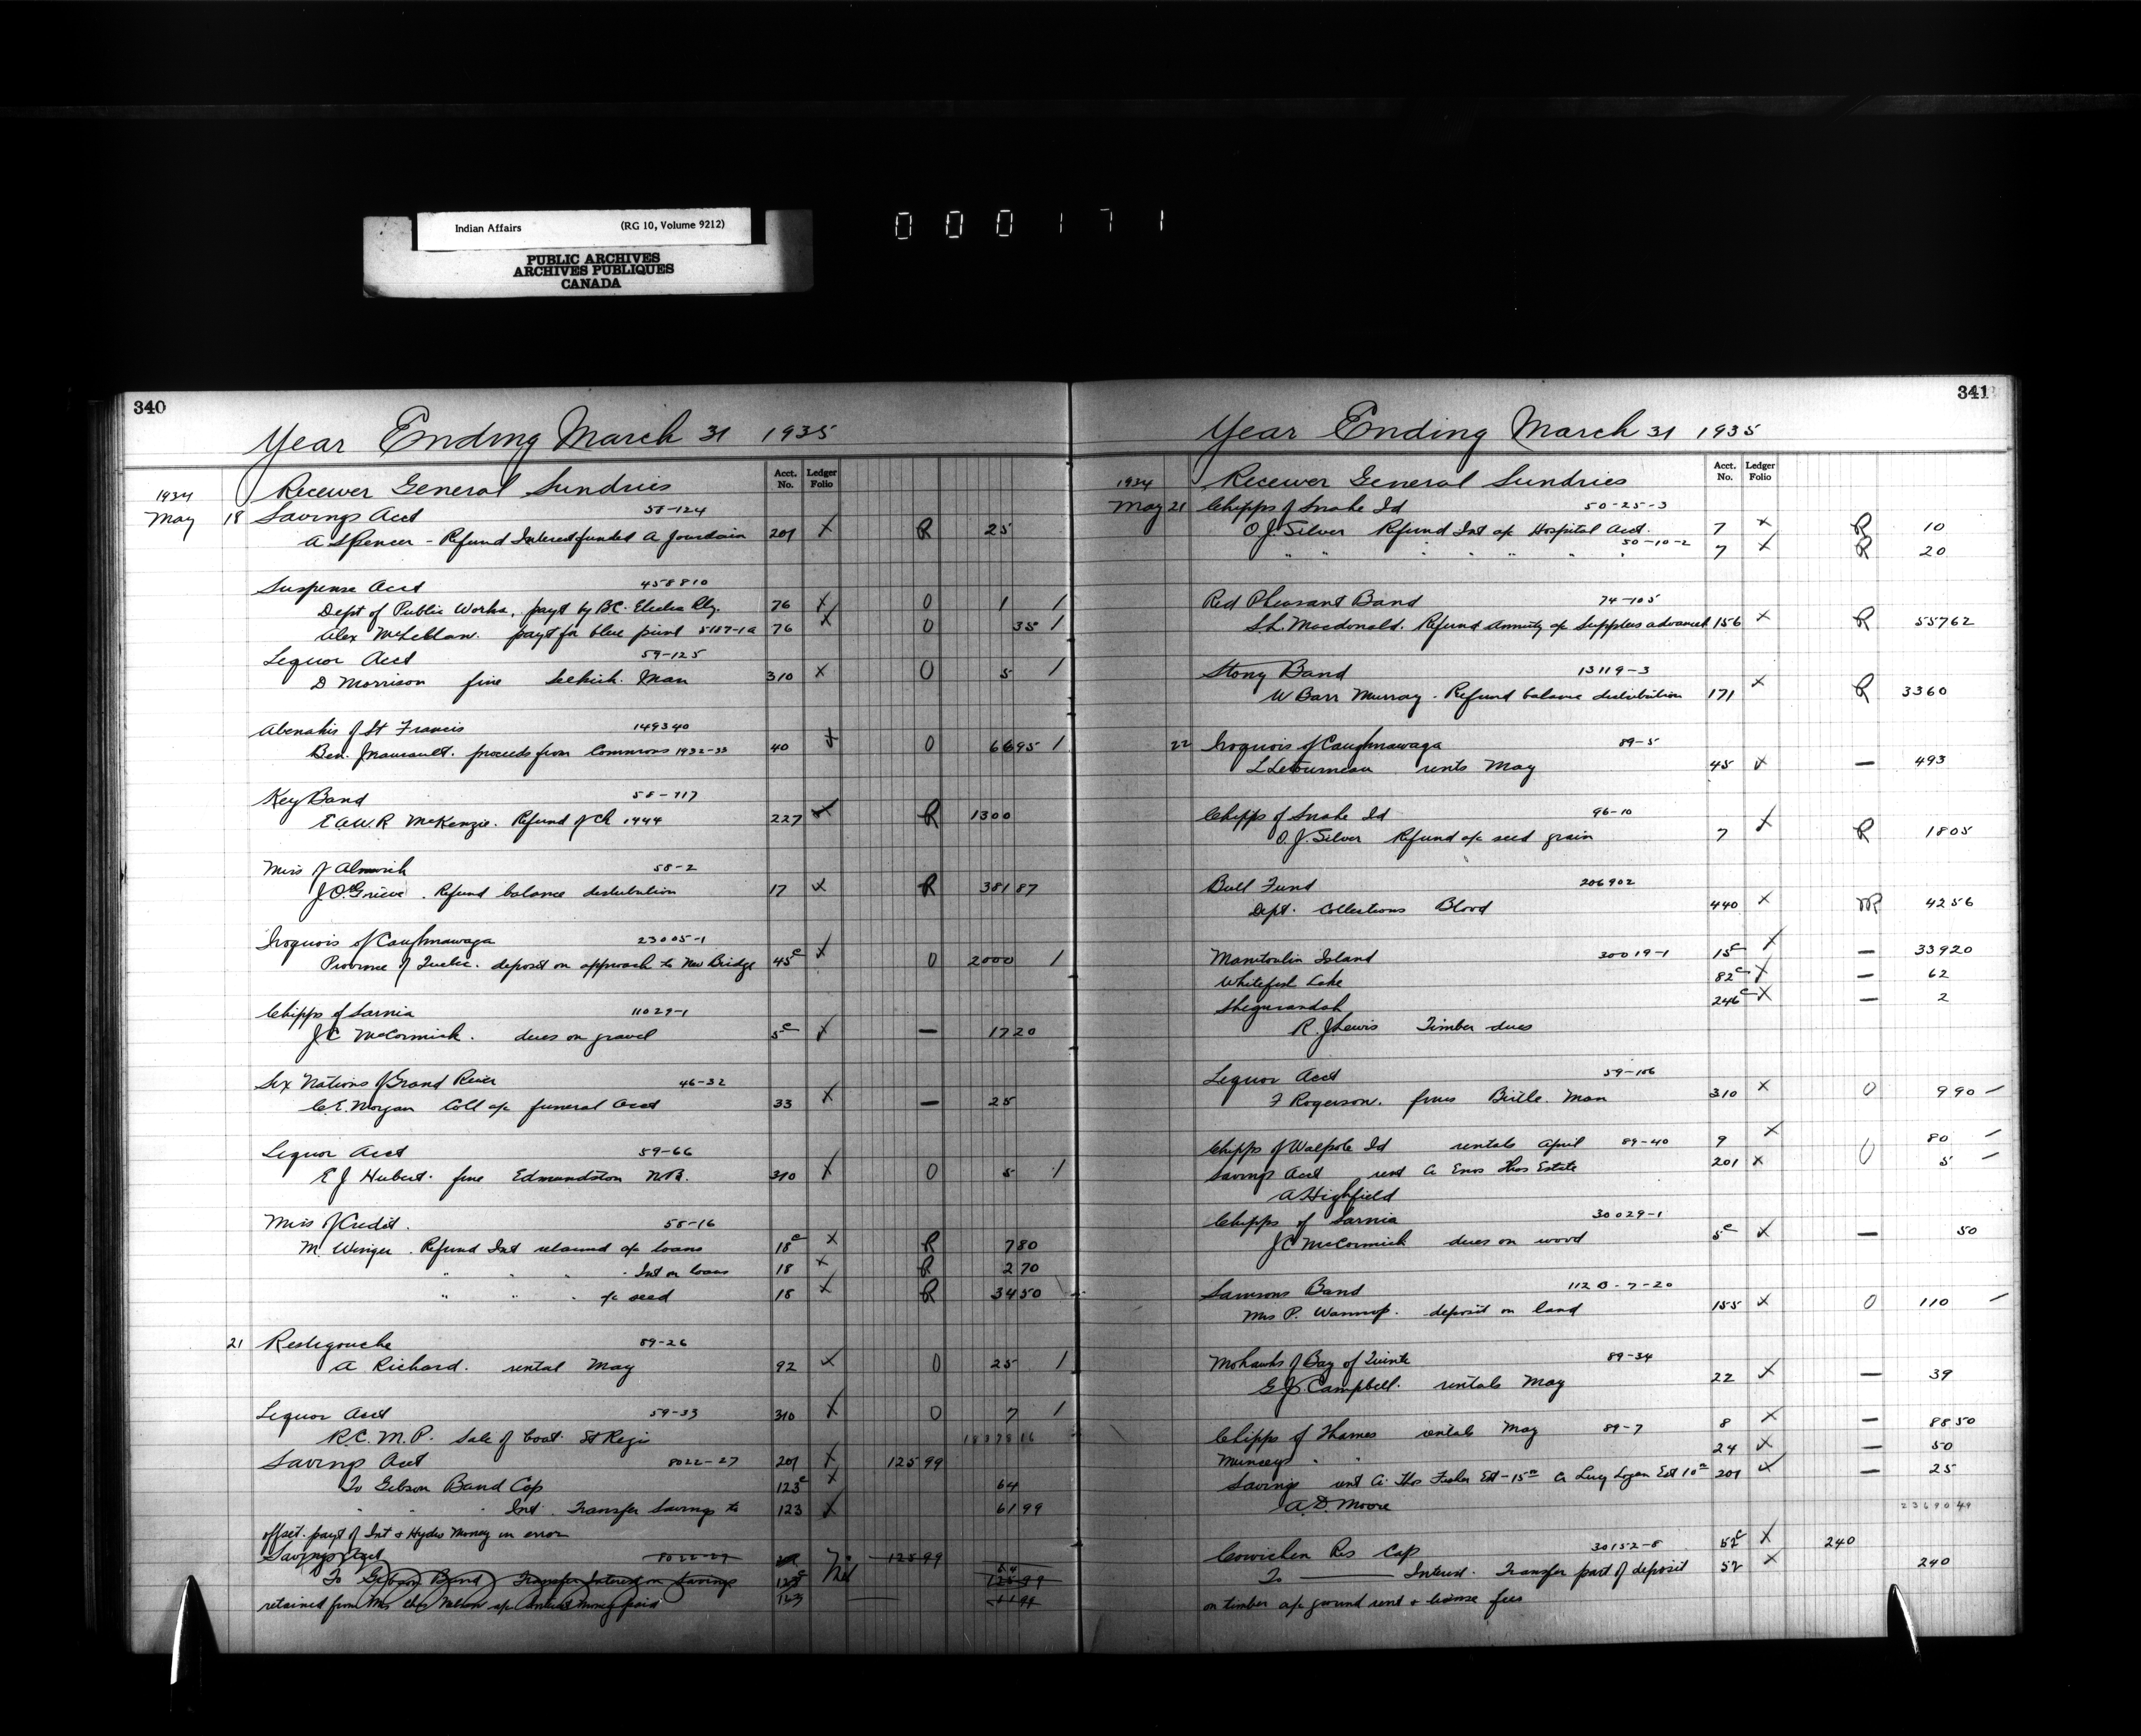 Indian Affairs (RG 10, Volume 9212)
PUBLIC ARCHIVES
ARCHIVES PUBLIQUES
CANADA
000171
340
Year Ending March 31 1935
Acct. No. Ledger Folio
1934 Receiver General Sundries
May 18 Savings Acct 58-124
A Spencer - Refund Interest funded A Jourdain 201 X R 25
Suspense Acct 458810
Dept of Public Works, payt by B.C. Electric Rly. 76 X 0 1 /
Alex payt for blue print 5187-1a 76 X 0 35 /
Liquor Acct 59-125
D Morrison fine Selkirk Man 310 X 0 5 /
Abenakis of St Francis 149340
Ben. proceeds from Commons 1932-33 40 X 0 6695 /
Key Band 58-717
E A.W.R McKenzie. Refund of Ch 1444 227 X R 1300
Miss of Alnwick 58-2
J.O. Grieve. Refund balance distribution 17 X R 38187
Iroquois of Caughnawaga 23005-1
Province of Quebec. deposit on approach to New Bridge 45c X 0 2000 /
Chipps of Sarnia 11029-1
J C McCormick. dues on gravel 5c X — 1720
Six Nations of Grand River 46-32
C.E. Morgan Coll a/c funeral Acct 33 X — 25
Liquor Acct 59-66
E J Hubert. fine Edmundston N.B. 310 X 0 5 /
Miss of Credit. 58-16
M. Winger. Refund Int a/c loans 18c X R 780
" " " Int on loans 18 X R 270
" " " a/c seed 18 X R 3450
21 Restigouche 89-26
A Richard. rental May 92 X 0 25 /
Liquor Acct 59-33 310 X 0 7 /
R.C.M.P. Sale of boat St Regis
Savings Acct 8022-27 201 X 12599
To Gibson Band Cap 123c X 64
" " Int. Transfer Savings to 123 X 6199
offset payt of Int & Hydro Money in error
Savings Acct 8022-27 12599
To Gibson Band Transfer Interest on Savings 123c Nil
retained from Mrs Nelson a/c Interest money paid 123
341
Year Ending March 31 1935
Acct. No. Ledger Folio
1934 Receiver General Sundries
May 21 Chipps of Snake Id 50-25-3
O.J. Silver Refund Int a/c Hospital Acct. 7 X R 10
" " " " " " 50-10-2 7 X R 20
Red Pheasant Band 74-105
S.L. Macdonald. Refund Annuity a/c Supplies advanced 156 X R 55762
Stony Band 13119-3
W Barr Murray. Refund balance distribution 171 X R 3360
22 Iroquois of Caughnawaga 89-5
L Letourneau rents May 45 X — 493
Chipps of Snake Id 96-10
O.J. Silver Refund a/c seed grain 7 X R 1805
Bull Fund 206902
Dept. Collections Blood 440 X 4256
Manitoulin Island 30019-1 15c X — 33920
Whitefish Lake 82c X — 62
Sheguiandah 246c X — 2
R. J Lewis Timber dues
Liquor Acct 59-106
F Rogerson. fines Birtle. Man 310 X 0 990 /
Chipps of Walpole Id rentals April 89-40 9 X 80 /
Savings Acct rent Cr Enos Estate 201 X 0 5 /
A Highfield
Chipps of Sarnia 30029-1
J C McCormick dues on wood 5c X — 50
Samsons Band 112 B-7-20
Mrs P. deposit on land 155 X 0 110 /
Mohawks of Bay of Quinte 89-34
G J Campbell. rentals May 22 X — 39
Chipps of Thames rentals May 89-7 8 X — 8850
Munceys " " 24 X — 50
Savings rent Cr Thos Fisher Est - 15.00 Cr Lucy Logan Est 10.00 201 X — 25
A.D. Moore 2369049
Cowichan Res Cap 30152-8 52c X 240
To — Interest. Transfer part of deposit 52 X 240
on timber a/c ground rent & license fees